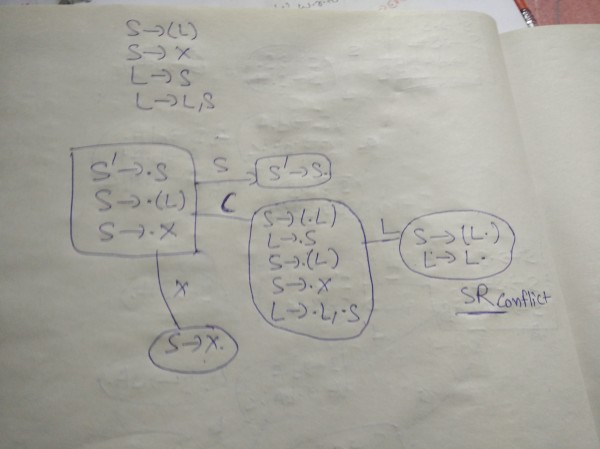 S→(L)
S→X
L→S
L→L,S
S'→.S
S→.(L)
S→.X
S
S'→S.
(
X
S→X.
S→(.L)
L→.S
S→.(L)
S→.X
L→.L,.S
L
S→(L.)
L→L.
SR Conflict